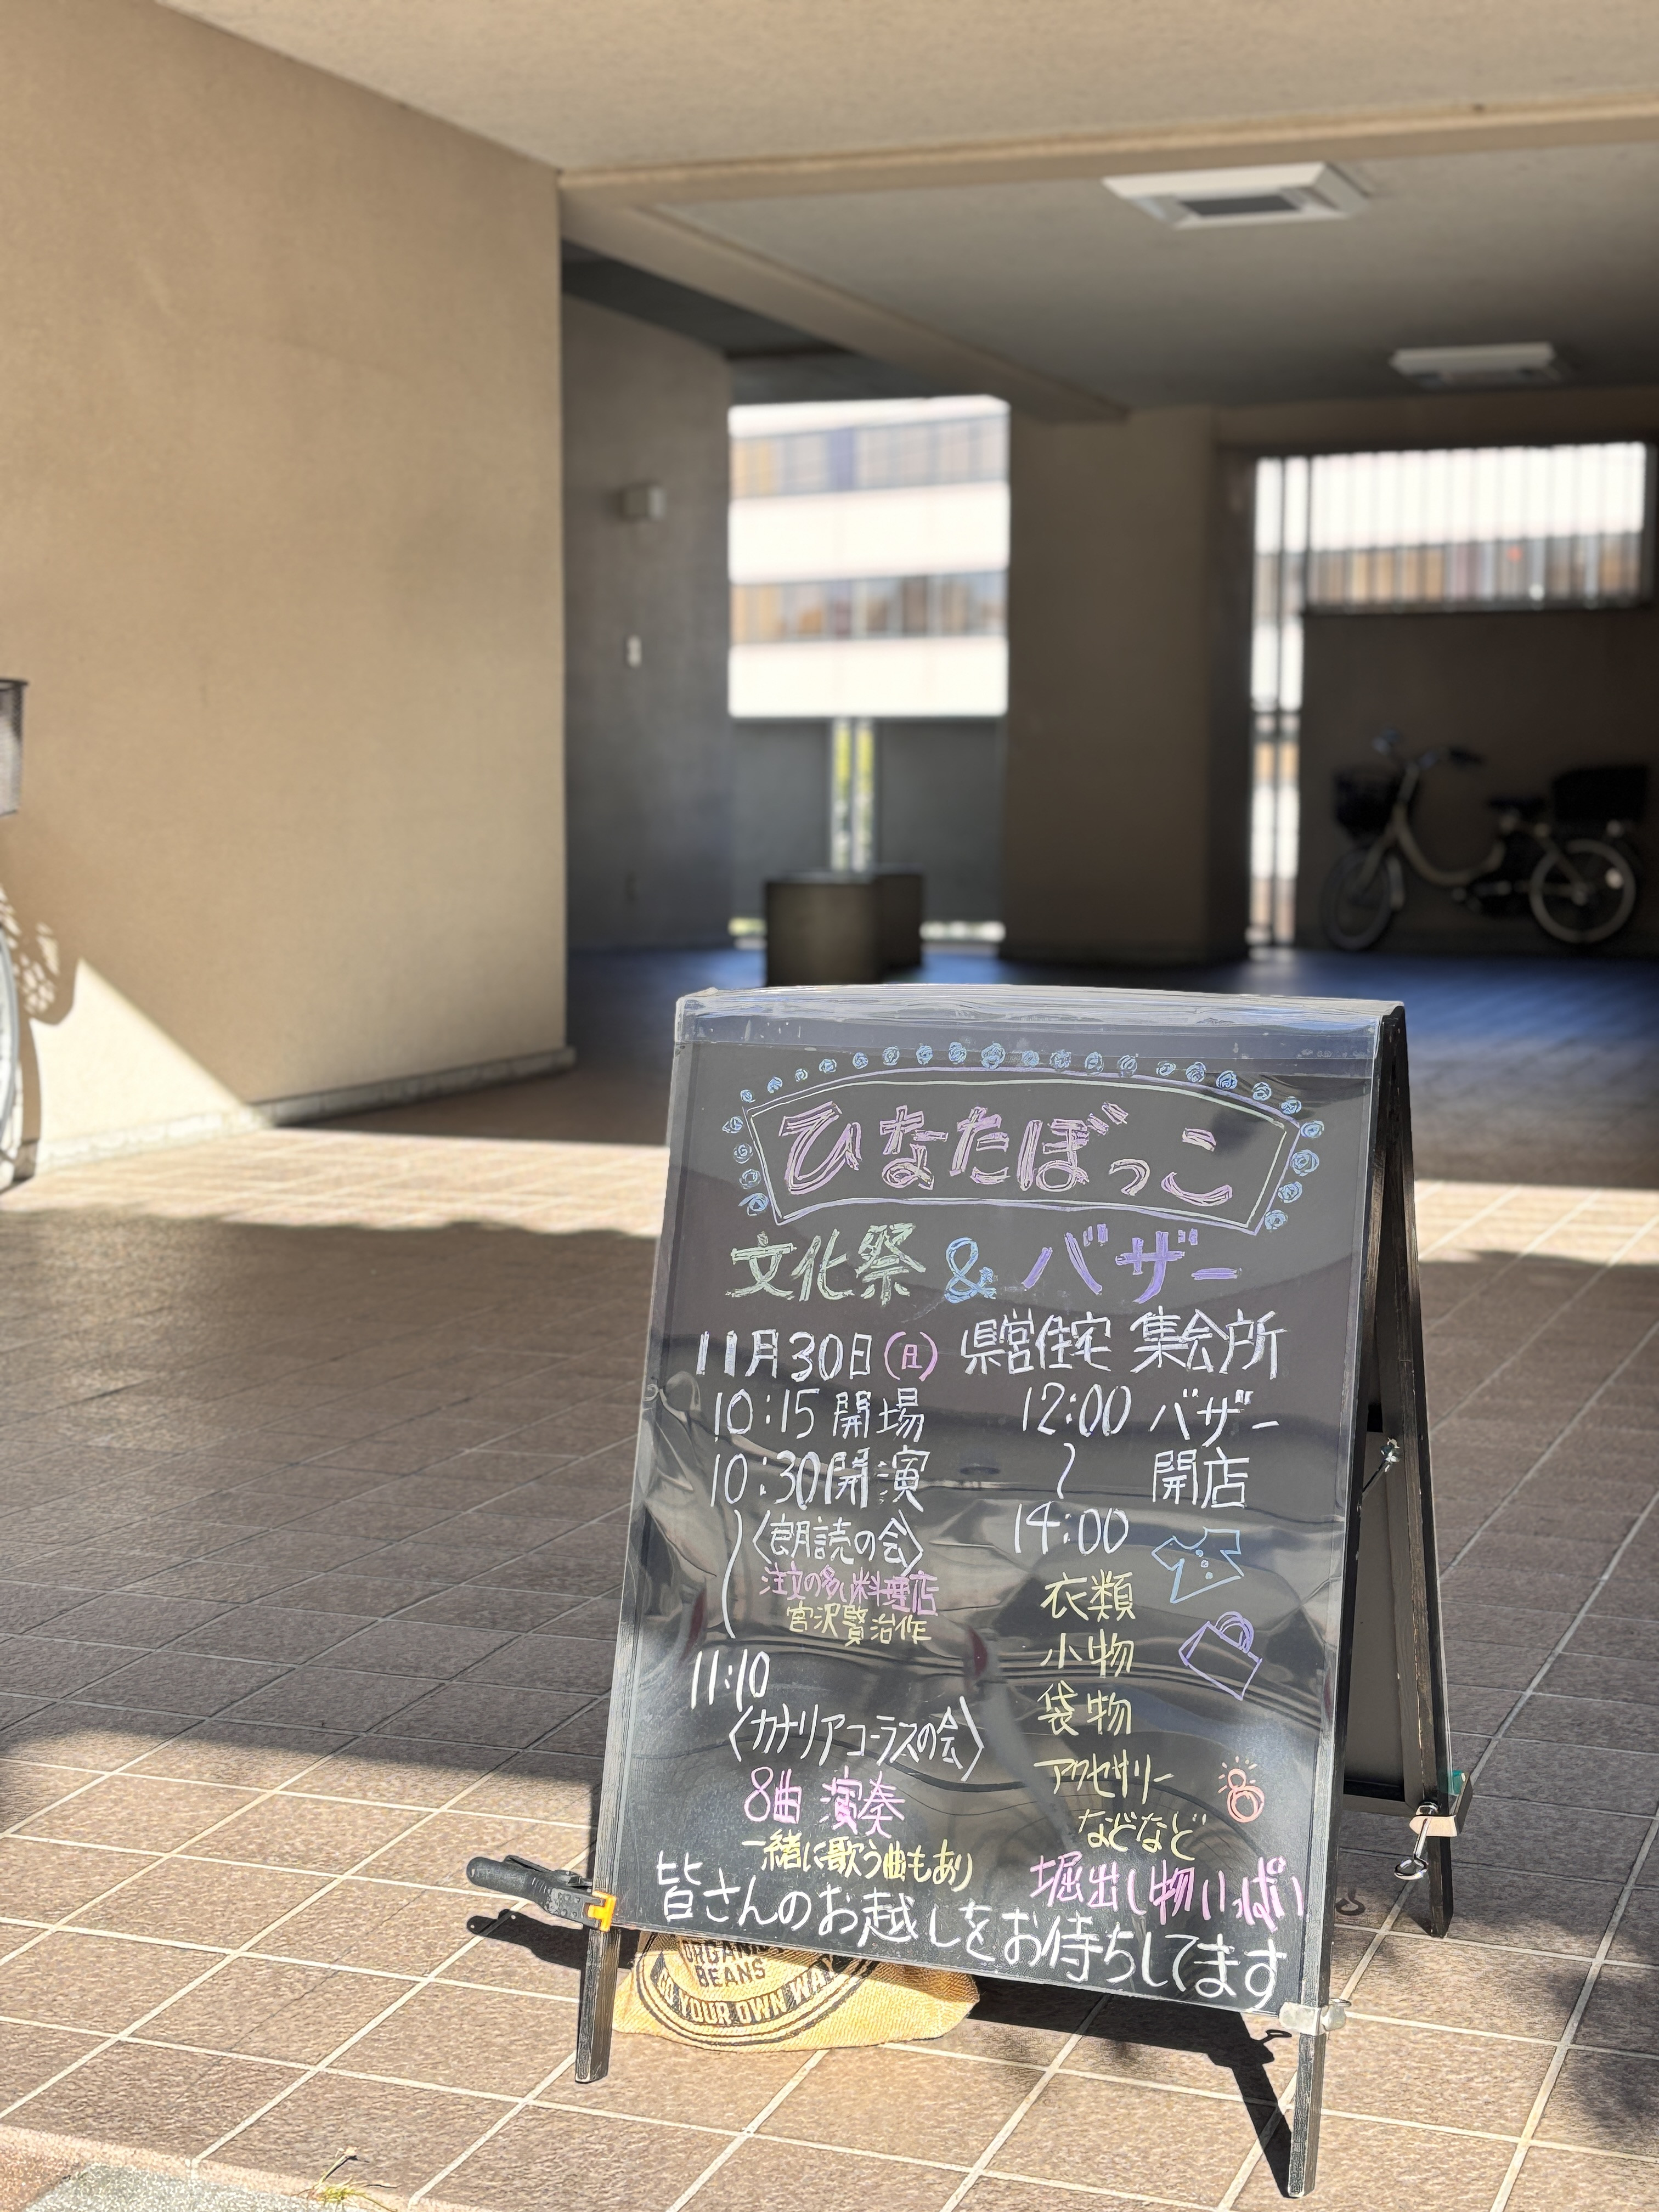 ひなたぼっこ
文化祭 & バザー
11月30日(日) 県営住宅 集会所
10:15 開場
10:30 開演
〈朗読の会〉
注文の多い料理店
宮沢賢治作
11:10
〈カナリアコーラスの会〉
8曲 演奏
一緒に歌う曲もあり
12:00 バザー
〜 開店
14:00
衣類
小物
袋物
アクセサリー
などなど
堀出し物いっぱい
皆さんのお越しをお待ちしてます
ORGANIC
BEANS
YOUR OWN WAY